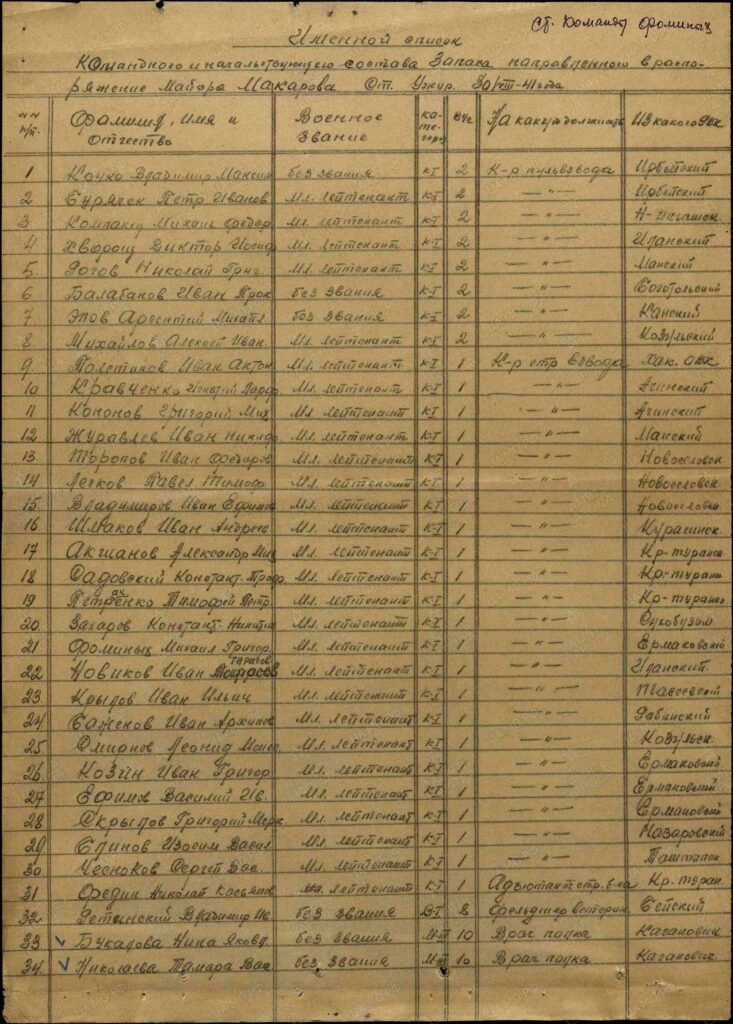 Ст. Команды Фоминых
Именной список
Командного и начальствующего состава Запаса направленного в распо-
ряжение Майора Макарова Ст. Ужур. 30/VIII-41 года
№ № п/п. Фамилия, имя и отчество Военное звание ка-те-гория ВУС На какую должность Из какого РВК
1 Кочко Владимир Максим без звания К-I 2 К-р пульвзвода Ирбейский
2 Бурячек Петр Иванов Мл. лейтенант К-I 2 — " — Ирбейский
3 Компанец Михаил Федор Мл. лейтенант К-I 2 — " — Н-ингашск.
4 Хворощ Виктор Иосиф Мл. лейтенант К-I 2 — " — Иланский
5 Рогов Николай Григ. Мл. лейтенант К-I 2 — " — Манский
6 Балабанов Иван Прок без звания К-I 2 — " — Боготольский
7 Эпов Арсентий Михайл без звания К-I 2 — " — Канский
8 Михайлов Алексей Иван Мл. лейтенант К-I 2 — " — Козульский
9 Полетиков Иван Антон Мл. лейтенант К-I 1 К-р стр взвода Хак. ОВК
10 Кравченко Игнатий Парф. Мл. лейтенант К-I 1 — " — Ачинский
11 Кононов Григорий Мих Мл. лейтенант К-I 1 — " — Ачинский
12 Журавлев Иван Никиф. Мл. лейтенант К-I 1 — " — Манский
13 Торопов Иван Федоров Мл. лейтенант К-I 1 — " — Новоселовск
14 Легков Павел Тимоф. Мл. лейтенант К-I 1 — " — Новоселовск.
15 Владимиров Иван Ефимов Мл. лейтенант К-I 1 — " — Новоселовск
16 Шмаков Иван Андреев Мл. лейтенант К-I 1 — " — Курагинск.
17 Акшанов Александр Мих Мл. лейтенант К-I 1 — " — Кр-туранск.
18 Садовский Констант. Проф. Мл. лейтенант К-I 1 — " — Кр-туранск
19 Петраченко Тимофей Петр. Мл. лейтенант К-I 1 — " — Кр-туранск.
20 Захаров Констант. Никитич Мл. лейтенант К-I 1 — " — Сухобузим.
21 Фоминых Михаил Григор Мл. лейтенант К-I 1 — " — Ермаковский
22 Новиков Иван Тарасов Мл. лейтенант К-I 1 — " — Иланский.
23 Крылов Иван Ильич Мл. лейтенант К-I 1 — " — Тасеевский
24 Баженов Иван Архипов Мл. лейтенант К-I 1 — " — Рыбинский
25 Смирнов Леонид Моис Мл. лейтенант К-I 1 — " — Козульск.
26 Козин Иван Григор Мл. лейтенант К-I 1 — " — Ермаковский
27 Ефимов Василий Ив. Мл. лейтенант К-I 1 — " — Ермаковский
28 Скрылов Григорий Мерк Мл. лейтенант К-I 1 — " — Ермаковский
29 Блинов Изосим Васил. Мл. лейтенант К-I 1 — " — Назаровский
30 Чесноков Сергей Вас. Мл. лейтенант К-I 1 — " — Таштыпск
31 Федин Николай Касьянов Мл лейтенант К-I 1 Адъютант стр. б-на Кр. туран.
32. Ретинский Владимир Ив. без звания В-I 8 Фельдшер ветерин. Бейский
33 Букатова Нина Яковл без звания М-III 10 Врач полка Каганович
34 Николаева Тамара Вас без звания М-III 10 Врач полка Каганович